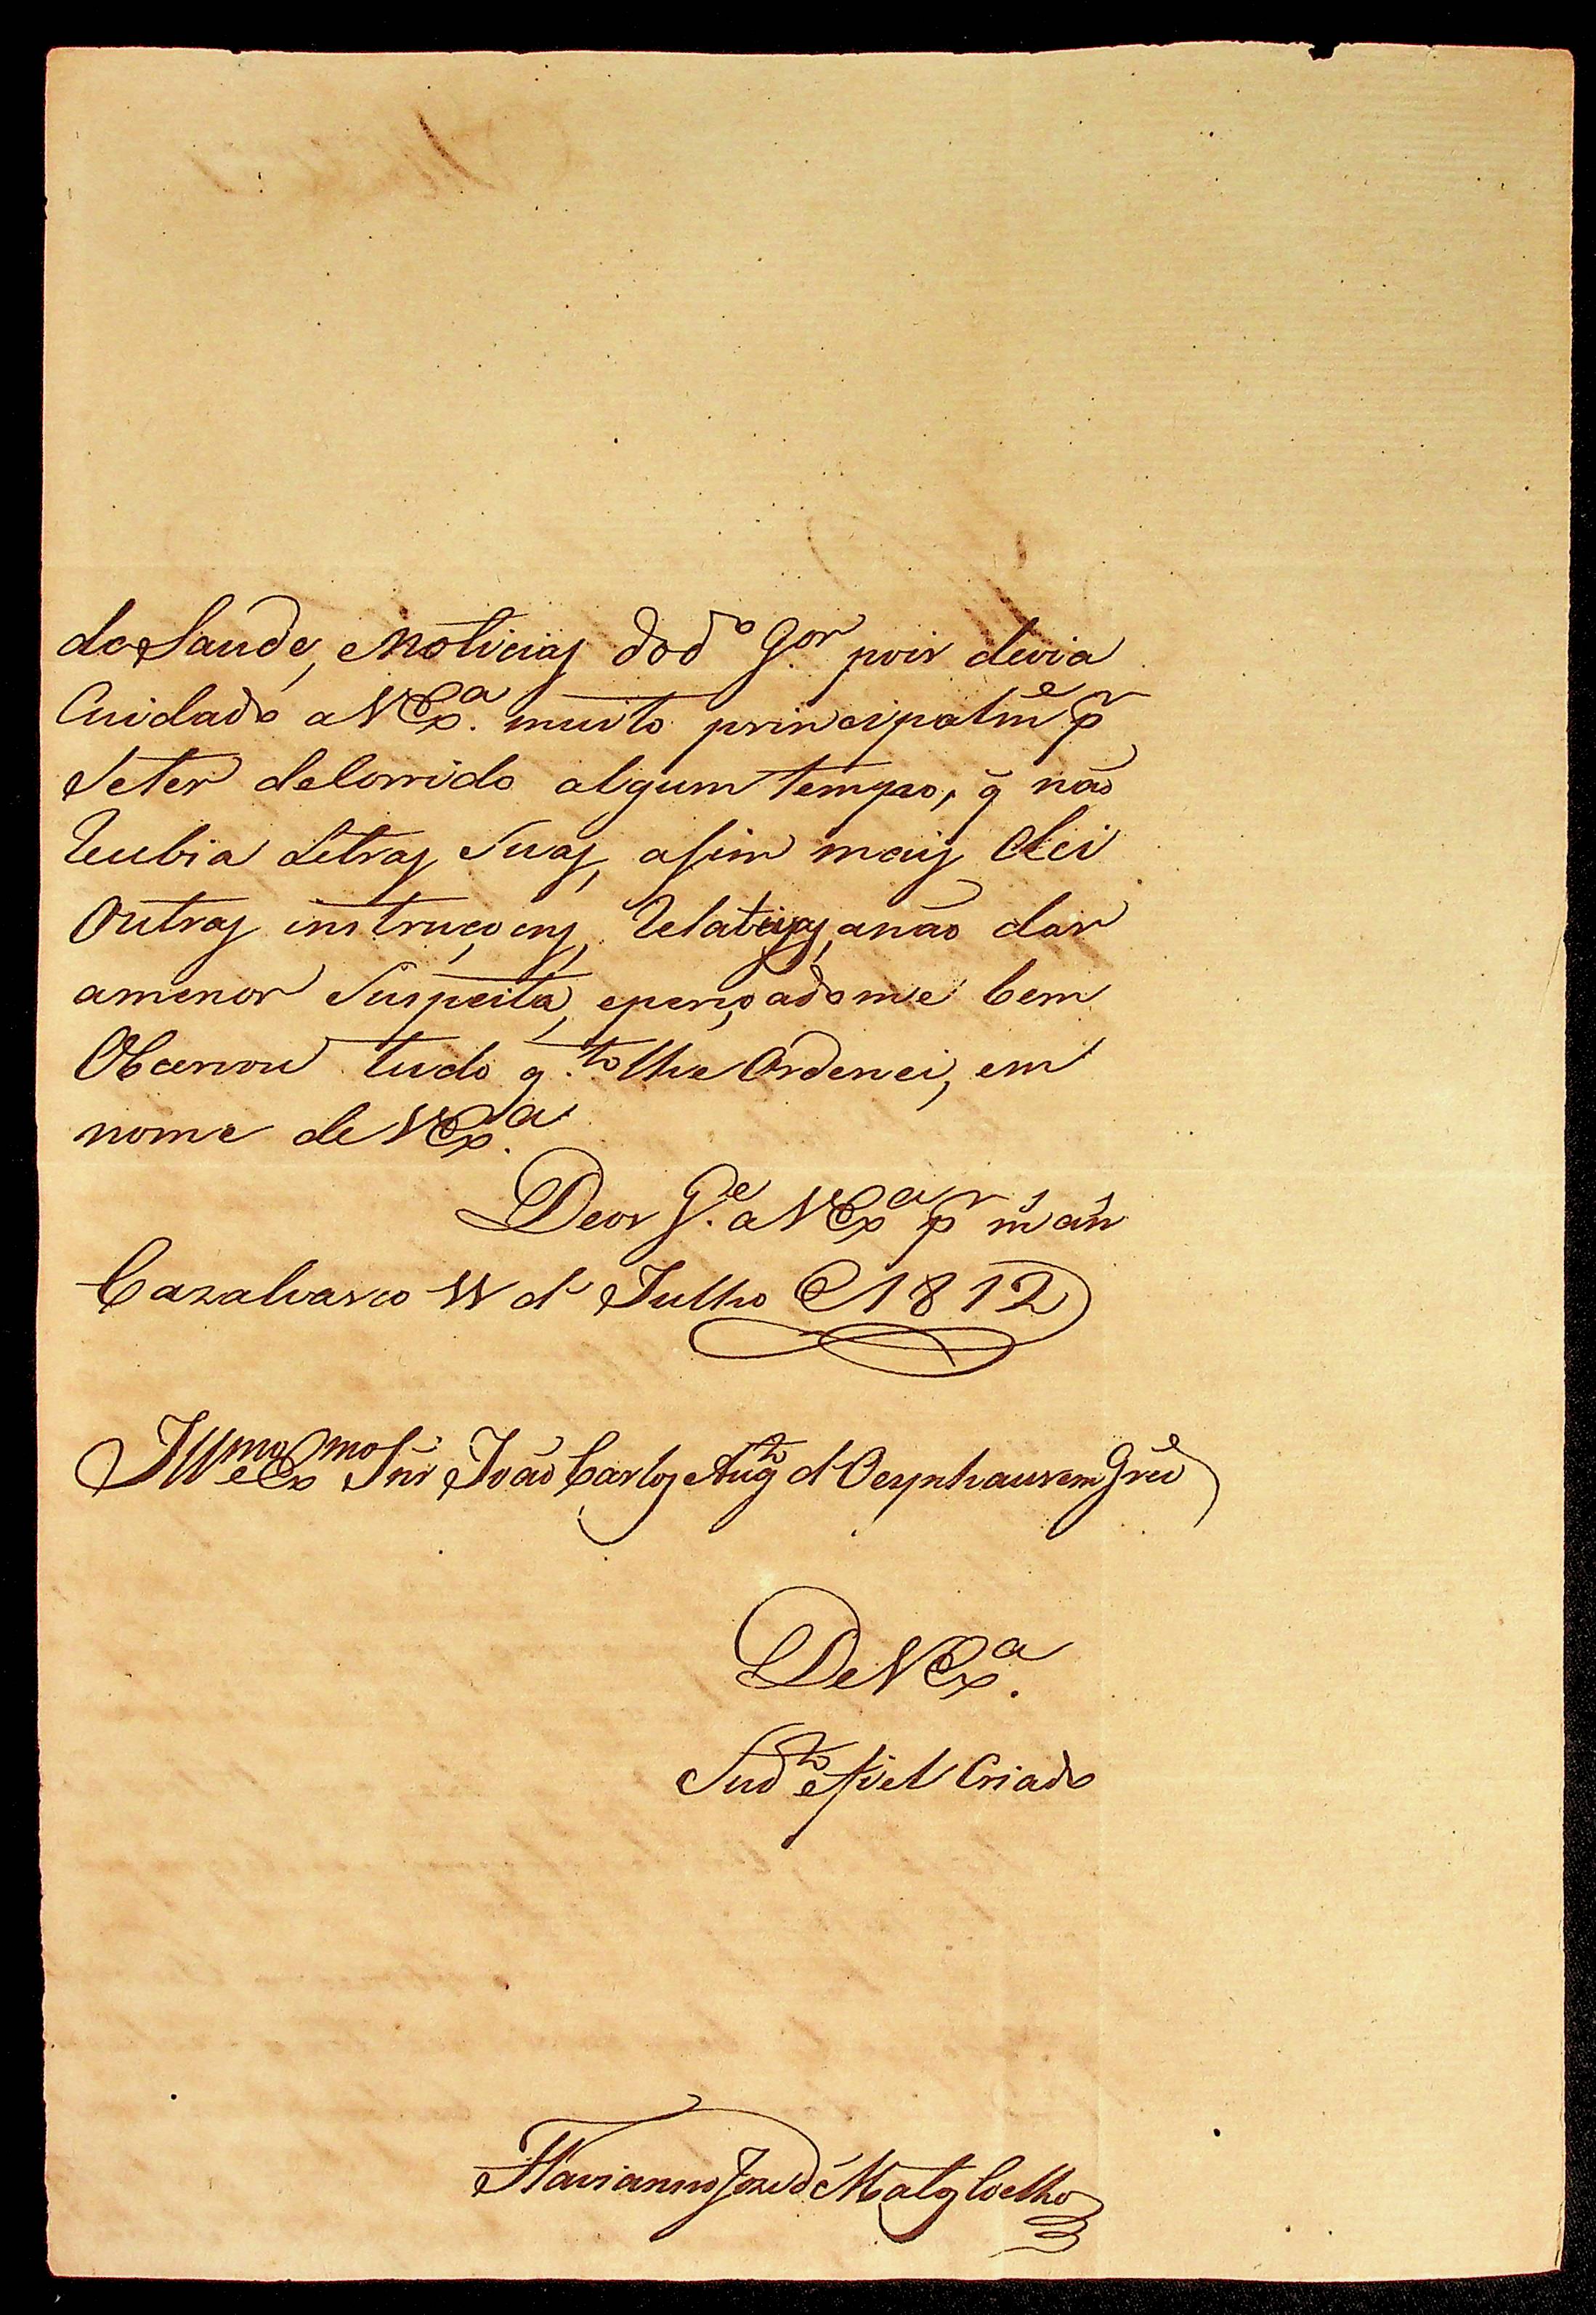 da Saude, e Noticias do d.º G.or pois devia
Cuidado a V Ex.ª muito principalm.e p.r
Se ter decorrido algum tempo, q̃ não
recebia Letras Suas, asim mais dei
Outras instruçoens, relativas, a não dar
amenor Suspeita,
Obcervou tudo q.to lhe Ordenei, em
nome de V Ex.ª
Deos G.e a V Ex.ª p.r m.s an.s
Cazalvasco de Julho de 1812
Ill.mo e Ex.mo Snr João Carlos Aug.to d'Oeynhausem
De V Ex.ª
Sud.to e fiel Criado
Flavianno Joze de Mattos Coelho